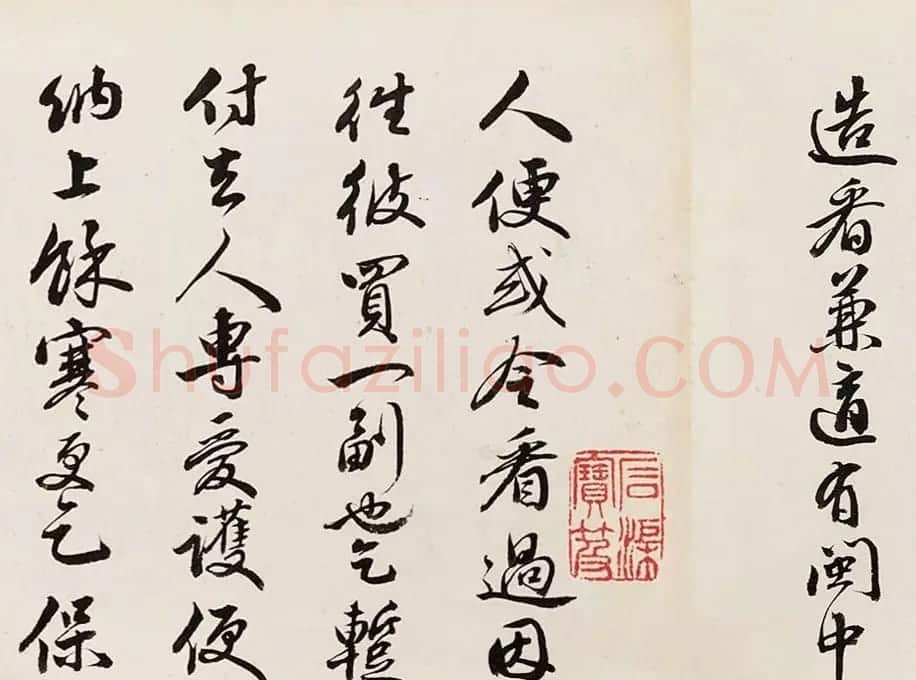 造看兼適有閩中
人便或令看過因
石渠寶笈
往彼買一副也乞暫
付去人專愛護便
納上餘寒更乞保
Shufaziliao.COM